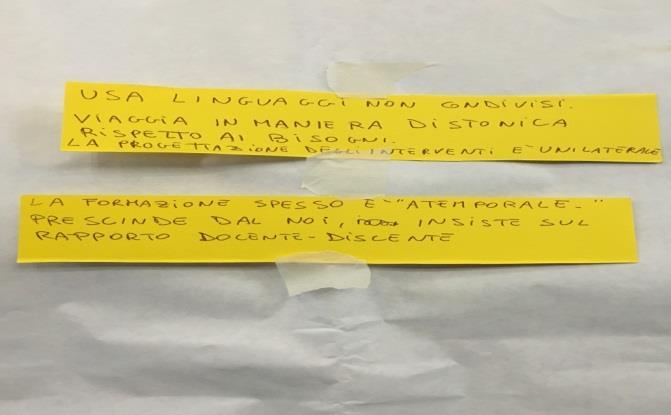 USA LINGUAGGI NON CONDIVISI.
VIAGGIA IN MANIERA DISTONICA
RISPETTO AI BISOGNI.
LA PROGETTAZIONE DEGLI INTERVENTI E' UNILATERALE
LA FORMAZIONE SPESSO E' "ATEMPORALE-"
PRESCINDE DAL NOI, INSISTE SUL
RAPPORTO DOCENTE-DISCENTE